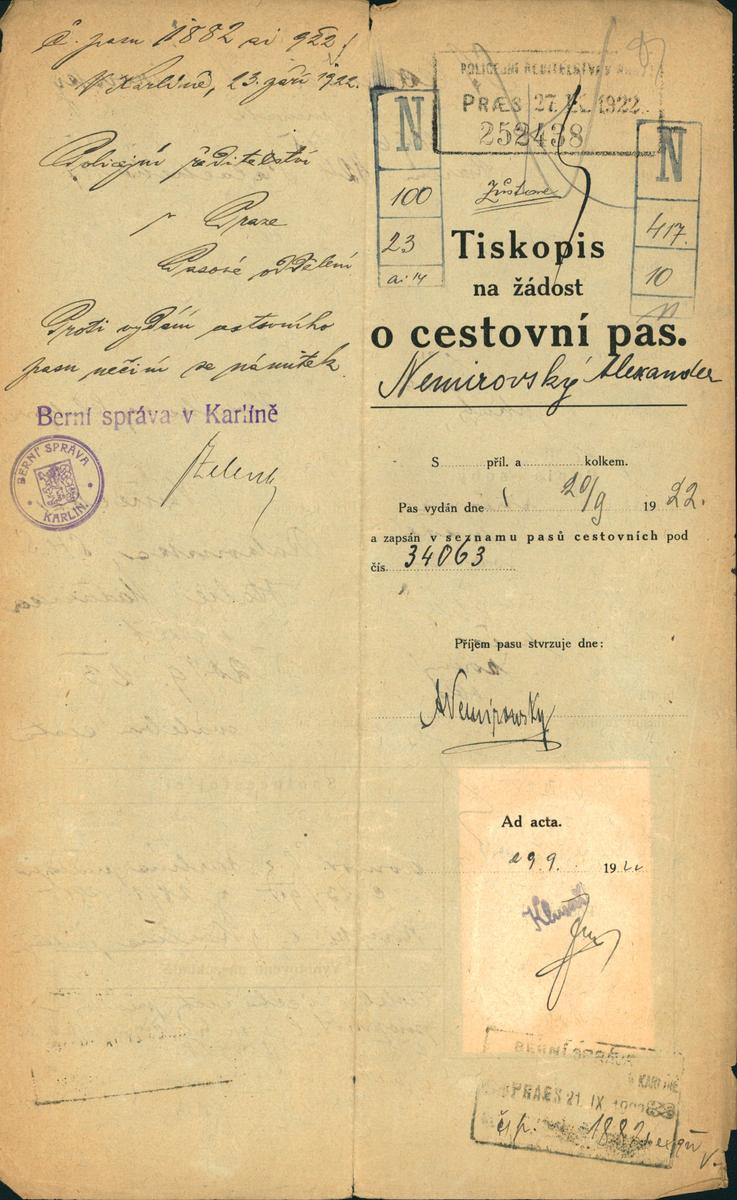 č. pasu 1882 ai 922
V Karlíně, 23. září 1922.
Policejní ředitelství
v Praze
Pasové oddělení
Proti vydání cestovního
pasu nečiní se námitek.
Berní správa v Karlíně
BERNÍ SPRÁVA
KARLÍN.
POLICEJNÍ ŘEDITELSTVÍ V PRAZE
PRÆS 27. IX. 1922
252438
N
100
23
ai 14
N
417.
10
Tiskopis
na žádost
o cestovní pas.
Nemirovský Alexander
S příl. a kolkem.
Pas vydán dne 20/9 1922.
a zapsán v seznamu pasů cestovních pod
čís. 34063
Příjem pasu stvrzuje dne:
ANemirowsky
Ad acta.
29 9. 1922
BERNÍ SPRÁVA
KARLÍN
PRAES 21. IX
čís. 1882